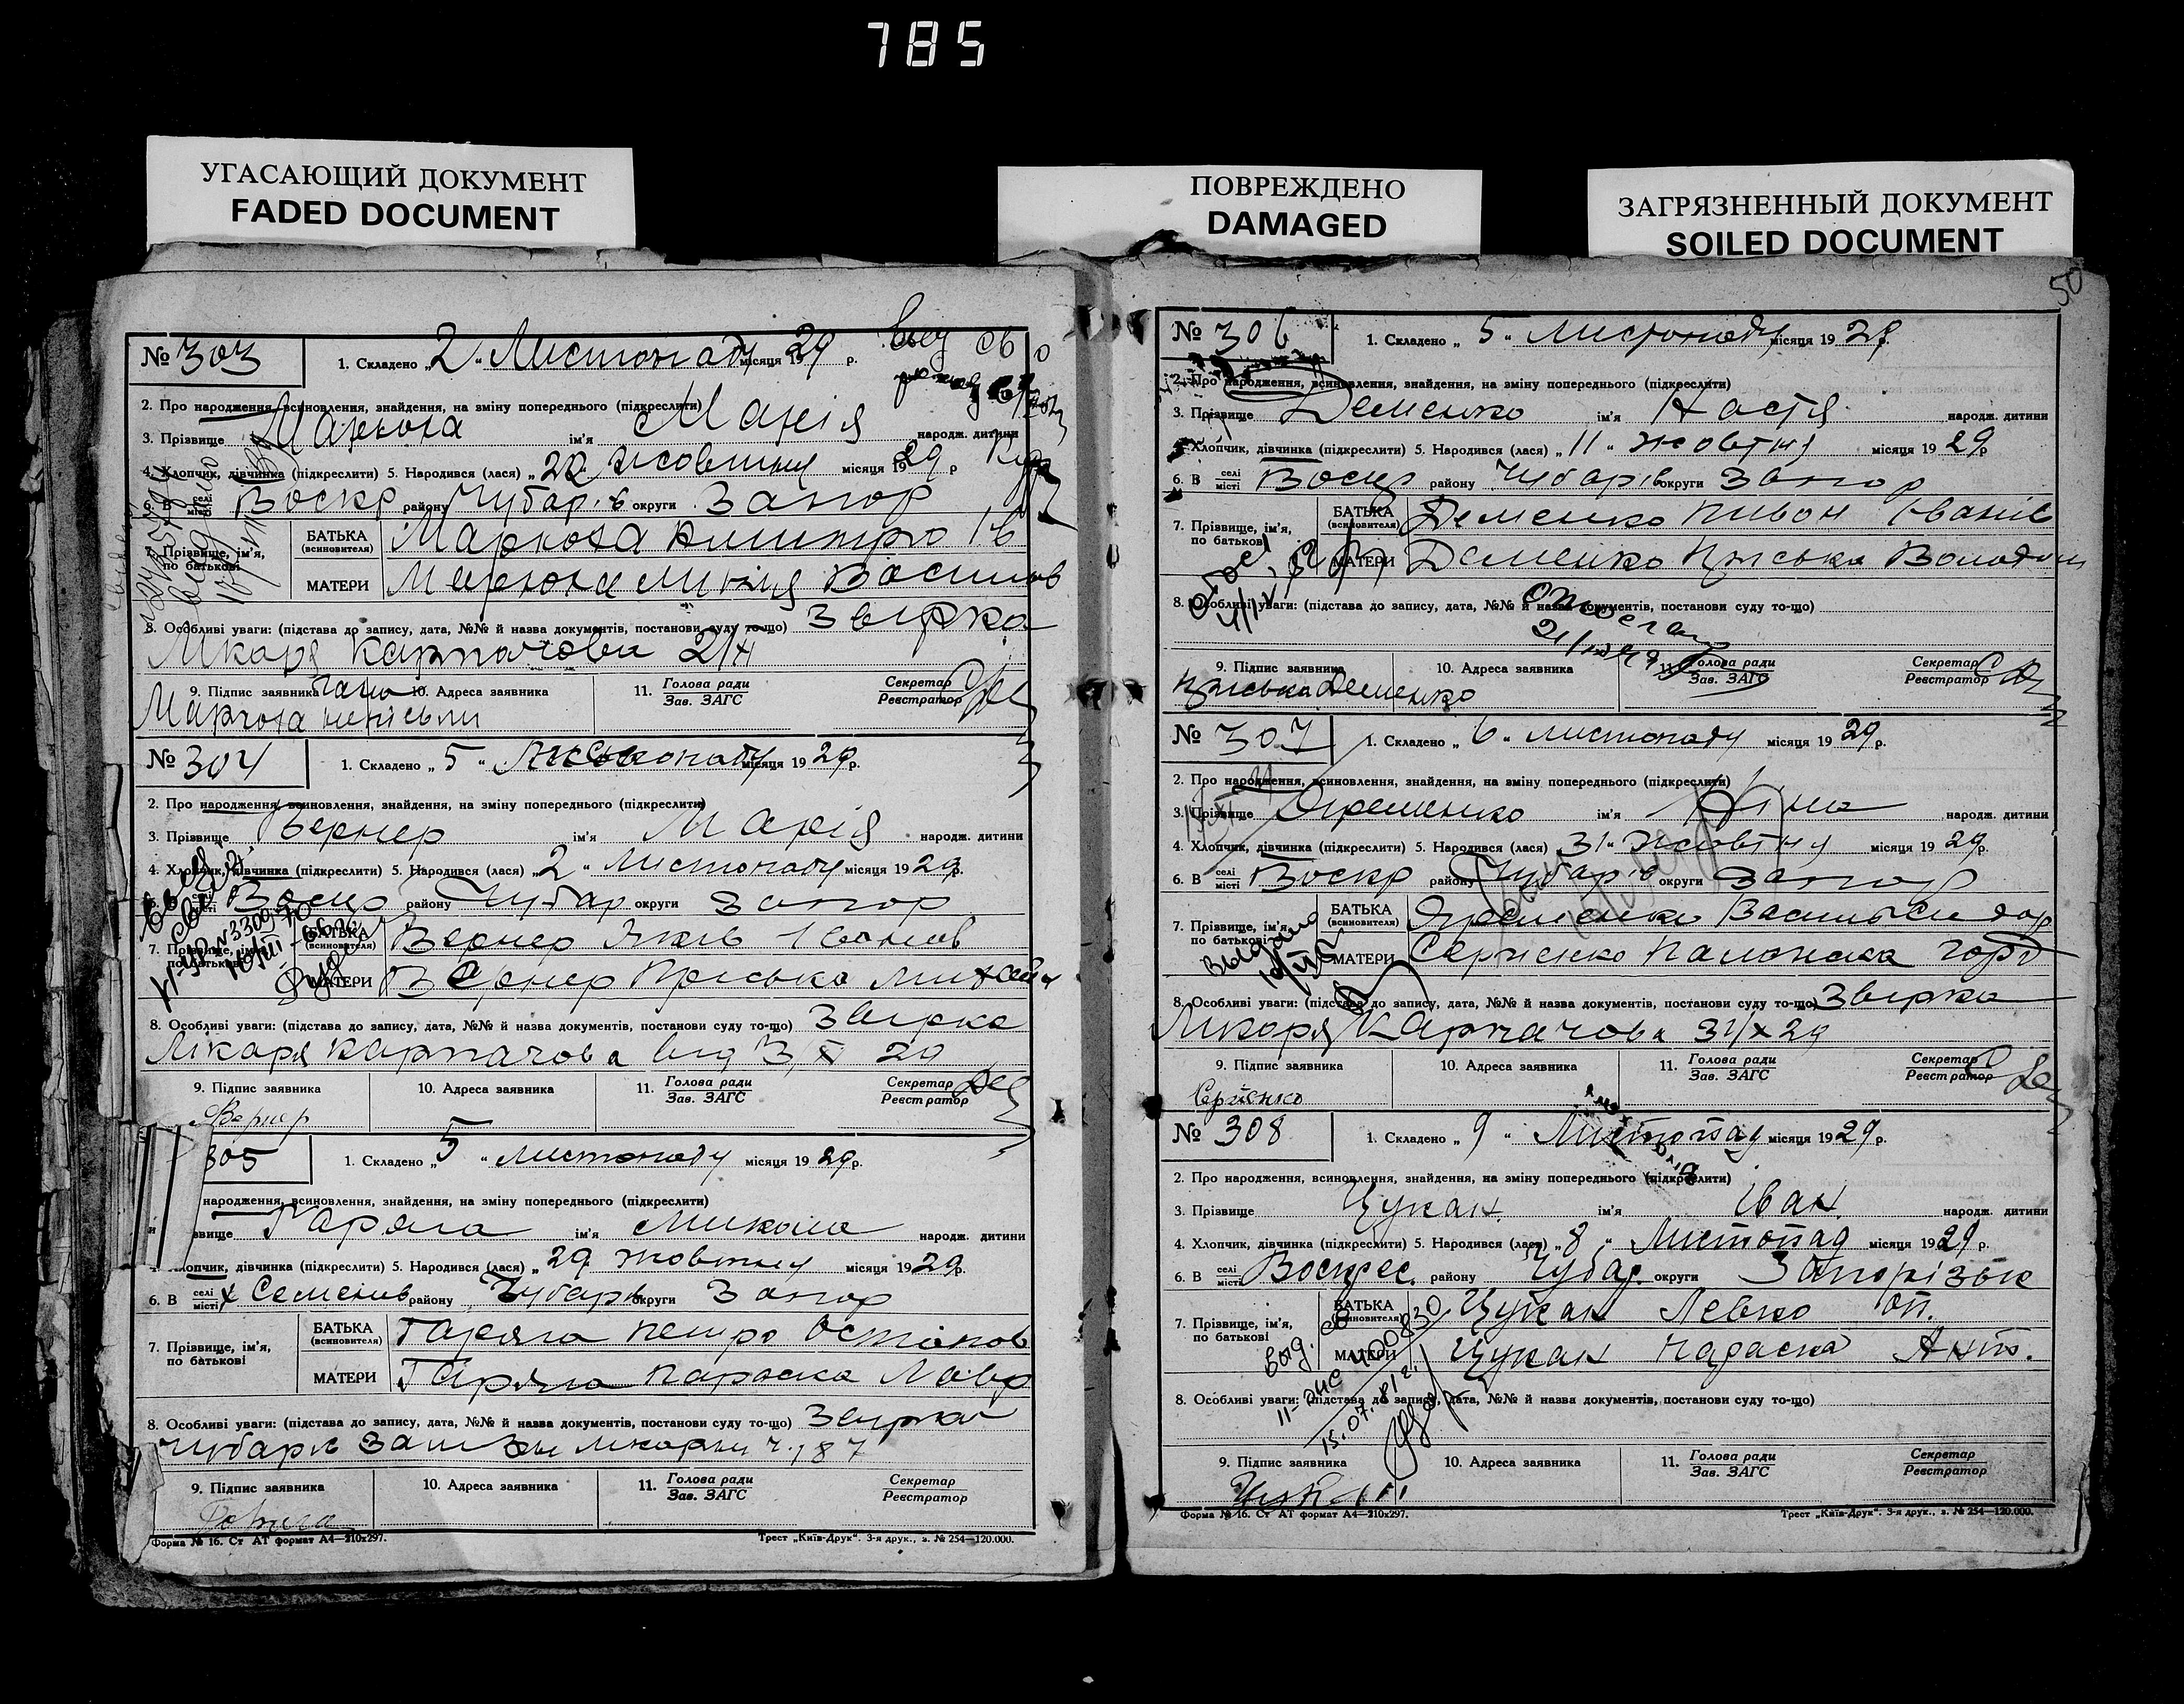 785
УГАСАЮЩИЙ ДОКУМЕНТ
FADED DOCUMENT
ПОВРЕЖДЕНО
DAMAGED
ЗАГРЯЗНЕННЫЙ ДОКУМЕНТ
SOILED DOCUMENT
№ 303
1. Складено „ 2 " Листопаду місяця 1929 р.
2. Про народження, всиновлення, знайдення, на зміну попереднього (підкреслити)
3. Прізвище Марюха ім'я Марія народж. дитини
4. Хлопчик, дівчинка (підкреслити) 5. Народився (лася) „ 22 жовтня місяця 1929 р
6. В селі місті Воскр району Чубарів округи Запор
7. Прізвище, ім'я, по батькові
БАТЬКА (всиновителя) Марюха Дмитро Ів
МАТЕРИ Марюха Василів
8. Особливі уваги: (підстава до запису, дата, №№ й назва документів, постанови суду то-що) Звірка
Лікаря Карпачова 2/XI
9. Підпис заявника 10. Адреса заявника 11. Голова ради Зав. ЗАГС Секретар Реєстратор
Марюха
№ 304
1. Складено „ 5 " Листопаду місяця 1929 р.
2. Про народження, всиновлення, знайдення, на зміну попереднього (підкреслити)
3. Прізвище Вернер ім'я Марія народж. дитини
4. Хлопчик, дівчинка (підкреслити) 5. Народився (лася) „ 2 " Листопаду місяця 1929 р.
6. В селі місті Воскр району Чубар округи Запор
7. Прізвище, ім'я, по батькові
БАТЬКА (всиновителя) Вернер Яків Іванов
МАТЕРИ Вернер Пріська Михайл
8. Особливі уваги: (підстава до запису, дата, №№ й назва документів, постанови суду то-що) Звірка
Лікаря Карпачова від 3/XI 29
9. Підпис заявника 10. Адреса заявника 11. Голова ради Зав. ЗАГС Секретар Реєстратор
Вернер
305
1. Складено „ 5 " Листопаду місяця 1929 р.
народження, всиновлення, знайдення, на зміну попереднього (підкреслити)
звище Гаряга ім'я Микола народж. дитини
лопчик, дівчинка (підкреслити) 5. Народився (лася) „ 29 жовтня місяця 1929 р.
6. В селі місті х Семенів району Чубарів округи Запор
7. Прізвище, ім'я, по батькові
БАТЬКА (всиновителя) Гаряга Петро Остапов
МАТЕРИ Гаряга Параска Лавр
8. Особливі уваги: (підстава до запису, дата, №№ й назва документів, постанови суду то-що) Звірка
Чубарів лікарні ч. 187
9. Підпис заявника 10. Адреса заявника 11. Голова ради Зав. ЗАГС Секретар Реєстратор
Форма № 16. Ст АТ формат А4—210х297. Трест „Київ-Друк". 3-я друк., з. № 254—120.000.
50
№ 306
1. Складено „ 5 " Листопаду місяця 1929 р.
2. Про народження, всиновлення, знайдення, на зміну попереднього (підкреслити)
3. Прізвище Деменко ім'я Настя народж. дитини
Хлопчик, дівчинка (підкреслити) 5. Народився (лася) „ 11 " жовтня місяця 1929 р
6. В селі місті Воскр району Чубарів округи Запор
7. Прізвище, ім'я, по батькові
БАТЬКА (всиновителя) Деменко Пивон Іванів
МАТЕРИ Деменко Пріська Володим
8. Особливі уваги: (підстава до запису, дата, №№ й назва документів, постанови суду то-що)
9. Підпис заявника 10. Адреса заявника 11. Голова ради Зав. ЗАГС Секретар Реєстратор
Пріська Деменко
№ 307
1. Складено „ 6 " листопаду місяця 1929 р.
2. Про народження, всиновлення, знайдення, на зміну попереднього (підкреслити)
3. Прізвище Яременко ім'я народж. дитини
4. Хлопчик, дівчинка (підкреслити) 5. Народився (лася) 31 " жовтня місяця 1929 р.
6. В селі місті Воскр району Чубарів округи Запор
7. Прізвище, ім'я, по батькові
БАТЬКА (всиновителя) Яременко Василь Сидор
МАТЕРИ Сергієнко Палажка Горд
8. Особливі уваги: (підстава до запису, дата, №№ й назва документів, постанови суду то-що) Звірка
Лікаря Карпачова 31/X 29
9. Підпис заявника 10. Адреса заявника 11. Голова ради Зав. ЗАГС Секретар Реєстратор
Сергієнко
№ 308
1. Складено „ 9 " Листопад місяця 1929 р.
2. Про народження, всиновлення, знайдення, на зміну попереднього (підкреслити)
3. Прізвище Цукан ім'я Іван народж. дитини
4. Хлопчик, дівчинка (підкреслити) 5. Народився (лася) „ 8 " Листопад місяця 1929 р.
6. В селі місті Воскрес. району Чубар. округи Запорізьк
7. Прізвище, ім'я, по батькові
БАТЬКА (всиновителя) Цукан Левко Оп.
МАТЕРИ Цукан Параска Ант.
8. Особливі уваги: (підстава до запису, дата, №№ й назва документів, постанови суду то-що)
9. Підпис заявника 10. Адреса заявника 11. Голова ради Зав. ЗАГС Секретар Реєстратор
Форма № 16. Ст АТ формат А4—210х297. Трест „Київ-Друк". 3-я друк., з. № 254—120.000.